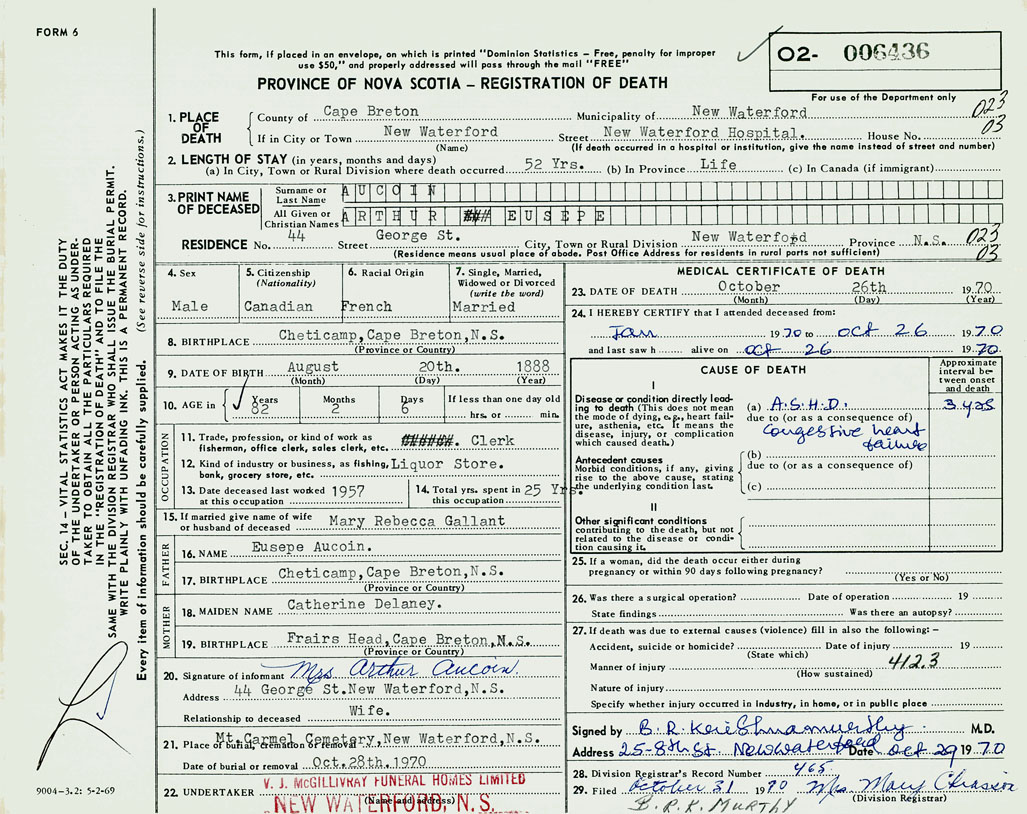 FORM 6
This form, if placed in an envelope, on which is printed "Dominion Statistics – Free, penalty for improper
use $50," and properly addressed will pass through the mail "FREE"
PROVINCE OF NOVA SCOTIA – REGISTRATION OF DEATH
O2- 006436
For use of the Department only
023
03
1. PLACE OF DEATH
County of Cape Breton Municipality of New Waterford
If in City or Town New Waterford Street New Waterford Hospital. House No.
(Name) (If death occurred in a hospital or institution, give the name instead of street and number)
2. LENGTH OF STAY (in years, months and days)
(a) In City, Town or Rural Division where death occurred 52 Yrs. (b) In Province Life (c) In Canada (if immigrant)
3. PRINT NAME OF DECEASED
Surname or Last Name AUCOIN
All Given or Christian Names ARTHUR ### EUSEPE
RESIDENCE No. 44 Street George St. City, Town or Rural Division New Waterford Province N.S. 023
03
(Residence means usual place of abode. Post Office Address for residents in rural parts not sufficient)
4. Sex
Male
5. Citizenship
(Nationality)
Canadian
6. Racial Origin
French
7. Single, Married,
Widowed or Divorced
(write the word)
Married
8. BIRTHPLACE Cheticamp,Cape Breton,N.S.
(Province or Country)
9. DATE OF BIRTH August 20th. 1888
(Month) (Day) (Year)
10. AGE in Years Months Days If less than one day old
82 2 6 hrs. or min.
OCCUPATION
11. Trade, profession, or kind of work as ######. Clerk
fisherman, office clerk, sales clerk, etc.
12. Kind of industry or business, as fishing, Liquor Store.
bank, grocery store, etc.
13. Date deceased last worked 1957
at this occupation
14. Total yrs. spent in 25 Yrs.
this occupation
15. If married give name of wife
or husband of deceased Mary Rebecca Gallant
FATHER
16. NAME Eusepe Aucoin.
17. BIRTHPLACE Cheticamp,Cape Breton,N.S.
(Province or Country)
MOTHER
18. MAIDEN NAME Catherine Delaney.
19. BIRTHPLACE Frairs Head,Cape Breton,N.S.
(Province or Country)
20. Signature of informant Mrs Arthur Aucoin
Address 44 George St.New Waterford,N.S.
Relationship to deceased Wife.
21. Place of burial, cremation or removal Mt.Carmel Cemetery,New Waterford,N.S.
Date of burial or removal Oct.28th.1970
22. UNDERTAKER V. J. McGILLIVRAY FUNERAL HOMES LIMITED
(Name and address)
NEW WATERFORD, N. S.
MEDICAL CERTIFICATE OF DEATH
23. DATE OF DEATH October 26th 1970
(Month) (Day) (Year)
24. I HEREBY CERTIFY that I attended deceased from:
Jan 1970 to Oct 26 1970
and last saw h alive on Oct 26 1970
CAUSE OF DEATH
Approximate
interval be-
tween onset
and death
I
Disease or condition directly lead-
ing to death (This does not mean
the mode of dying, e.g., heart fail-
ure, asthenia, etc. It means the
disease, injury, or complication
which caused death.)
(a) A.S.H.D. 3 yrs
due to (or as a consequence of)
Congestive heart
failure
Antecedent causes
Morbid conditions, if any, giving
rise to the above cause, stating
the underlying condition last.
(b)
due to (or as a consequence of)
(c)
II
Other significant conditions
contributing to the death, but not
related to the disease or condi-
tion causing it.
25. If a woman, did the death occur either during
pregnancy or within 90 days following pregnancy?
(Yes or No)
26. Was there a surgical operation? Date of operation 19
State findings Was there an autopsy?
27. If death was due to external causes (violence) fill in also the following: –
Accident, suicide or homicide? Date of injury 19
(State which)
Manner of injury 412.3
(How sustained)
Nature of injury
Specify whether injury occurred in industry, in home, or in public place
Signed by B. R. Keishnamurthy M.D.
Address 25-8th St. New Waterford Date Oct 29 1970
28. Division Registrar's Record Number 465
29. Filed October 31 1970 Mrs Mary Chiasson
(Division Registrar)
B. R. K. MURTHY
9004–3.2: 5-2-69
SEC. 14 – VITAL STATISTICS ACT MAKES IT THE DUTY
OF THE UNDERTAKER OR PERSON ACTING AS UNDER-
TAKER TO OBTAIN ALL THE PARTICULARS REQUIRED
IN THE "REGISTRATION OF DEATH" AND TO FILE THE
SAME WITH THE DIVISION REGISTRAR WHO SHALL ISSUE THE BURIAL PERMIT.
WRITE PLAINLY WITH UNFADING INK. THIS IS A PERMANENT RECORD.
Every item of information should be carefully supplied. (See reverse side for instructions.)